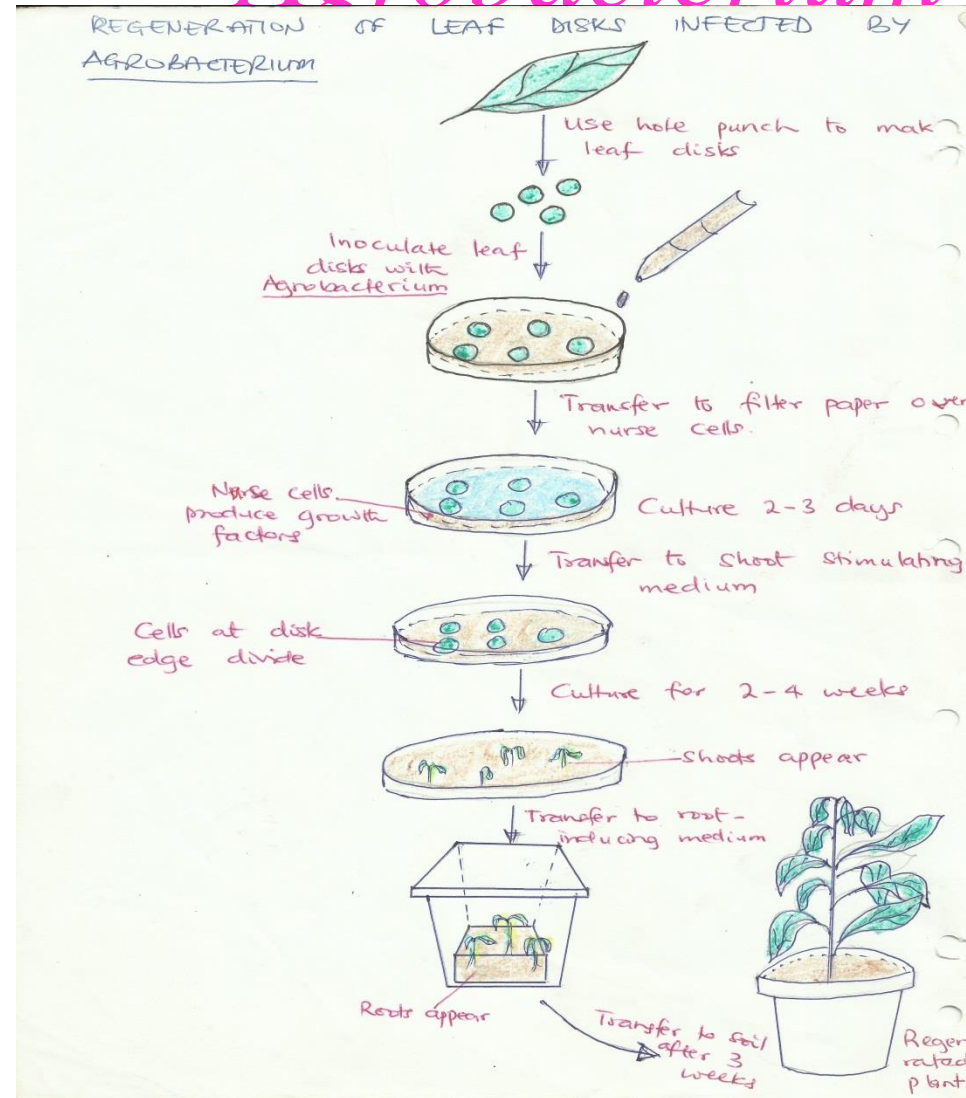 REGENERATION OF LEAF DISKS INFECTED BY
AGROBACTERIUM
Use hole punch to mak
leaf disks
Inoculate leaf
disks with
Agrobacterium
Transfer to filter paper over
nurse cells.
Nurse cells
produce growth
factors
Culture 2-3 days
Transfer to shoot stimulating
medium
Cells at disk
edge divide
Culture for 2-4 weeks
Shoots appear
Transfer to root-
inducing medium
Roots appear
Transfer to soil
after 3
weeks
Regen
rated
plant